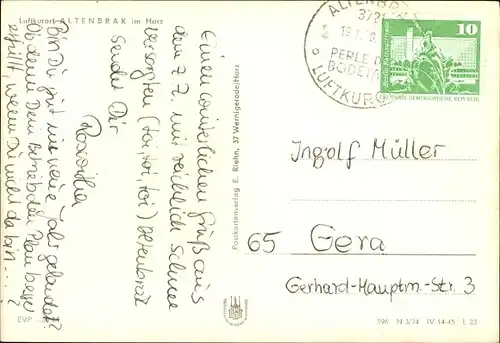 Luftkurort ALTENBRAK im Harz
Einen winterlichen Gruß aus
dem z. Z. mit reichlich Schnee
versorgten (toi, toi, toi) Altenbrak
sendet Dir
Roswitha
Bist Du gut ins neue Jahr gelandet?
Ob denn Dein Betrieb den Plan
erfüllt, wenn Du nicht da bin...?
Postkartenverlag E. Riehn, 37 Wernigerode/Harz
EVP
ALTENBRAK
3721
PERLE
BODETAL
LUFTKURO
10
DEUTSCHE DEMOKRATISCHE REPUBLIK
Ingolf Müller
65 Gera
Gerhard-Hauptm.-Str. 3
596 N 3/74 IV-14-45 L 23